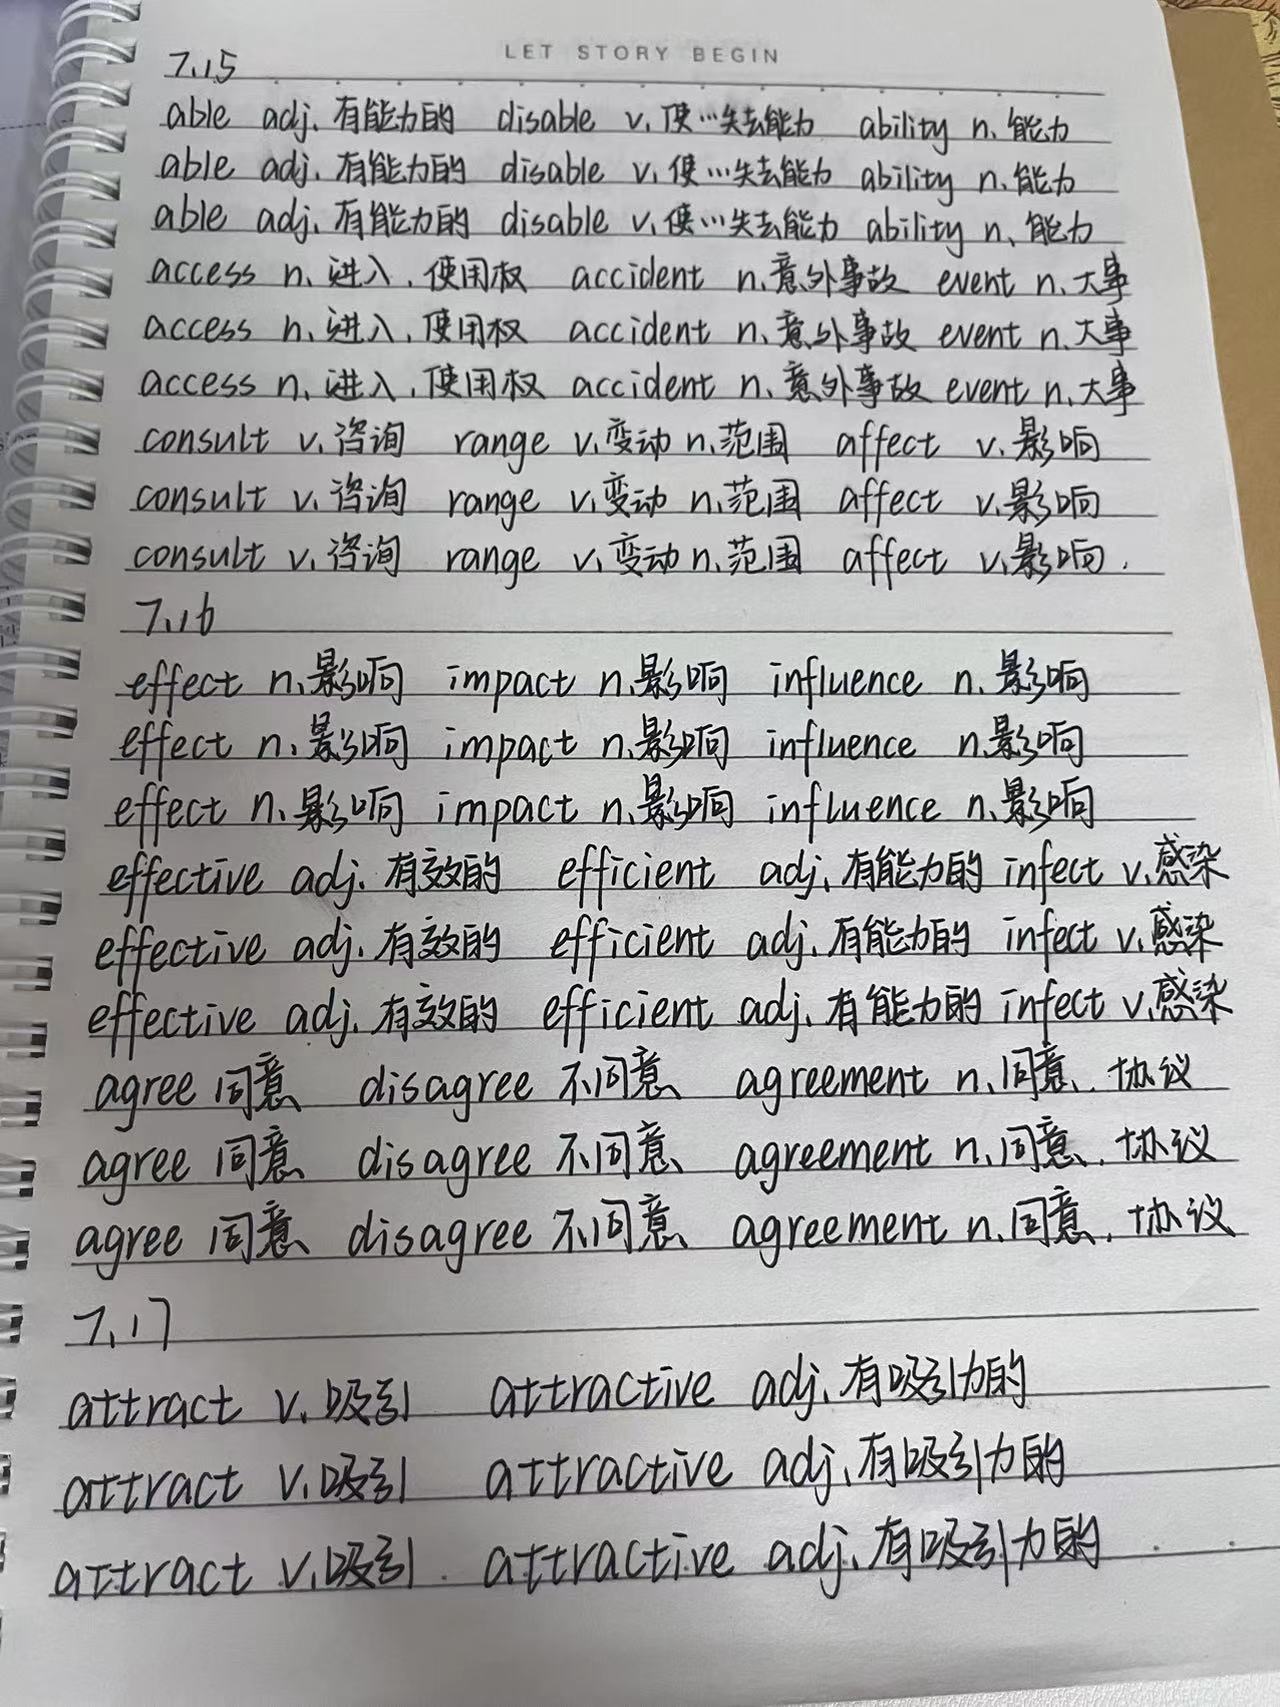 LET STORY BEGIN
7.15
able adj. 有能力的 disable v. 使…失去能力 ability n. 能力
able adj. 有能力的 disable v. 使…失去能力 ability n. 能力
able adj. 有能力的 disable v. 使…失去能力 ability n. 能力
access n. 进入, 使用权 accident n. 意外事故 event n. 大事
access n. 进入, 使用权 accident n. 意外事故 event n. 大事
access n. 进入, 使用权 accident n. 意外事故 event n. 大事
consult v. 咨询 range v. 变动 n. 范围 affect v. 影响
consult v. 咨询 range v. 变动 n. 范围 affect v. 影响
consult v. 咨询 range v. 变动 n. 范围 affect v. 影响.
7.16
effect n. 影响 impact n. 影响 influence n. 影响
effect n. 影响 impact n. 影响 influence n. 影响
effect n. 影响 impact n. 影响 influence n. 影响
effective adj. 有效的 efficient adj. 有能力的 infect v. 感染
effective adj. 有效的 efficient adj. 有能力的 infect v. 感染
effective adj. 有效的 efficient adj. 有能力的 infect v. 感染
agree 同意 disagree 不同意 agreement n. 同意, 协议
agree 同意 disagree 不同意 agreement n. 同意, 协议
agree 同意 disagree 不同意 agreement n. 同意, 协议
7.17
attract v. 吸引 attractive adj. 有吸引力的
attract v. 吸引 attractive adj. 有吸引力的
attract v. 吸引 attractive adj. 有吸引力的